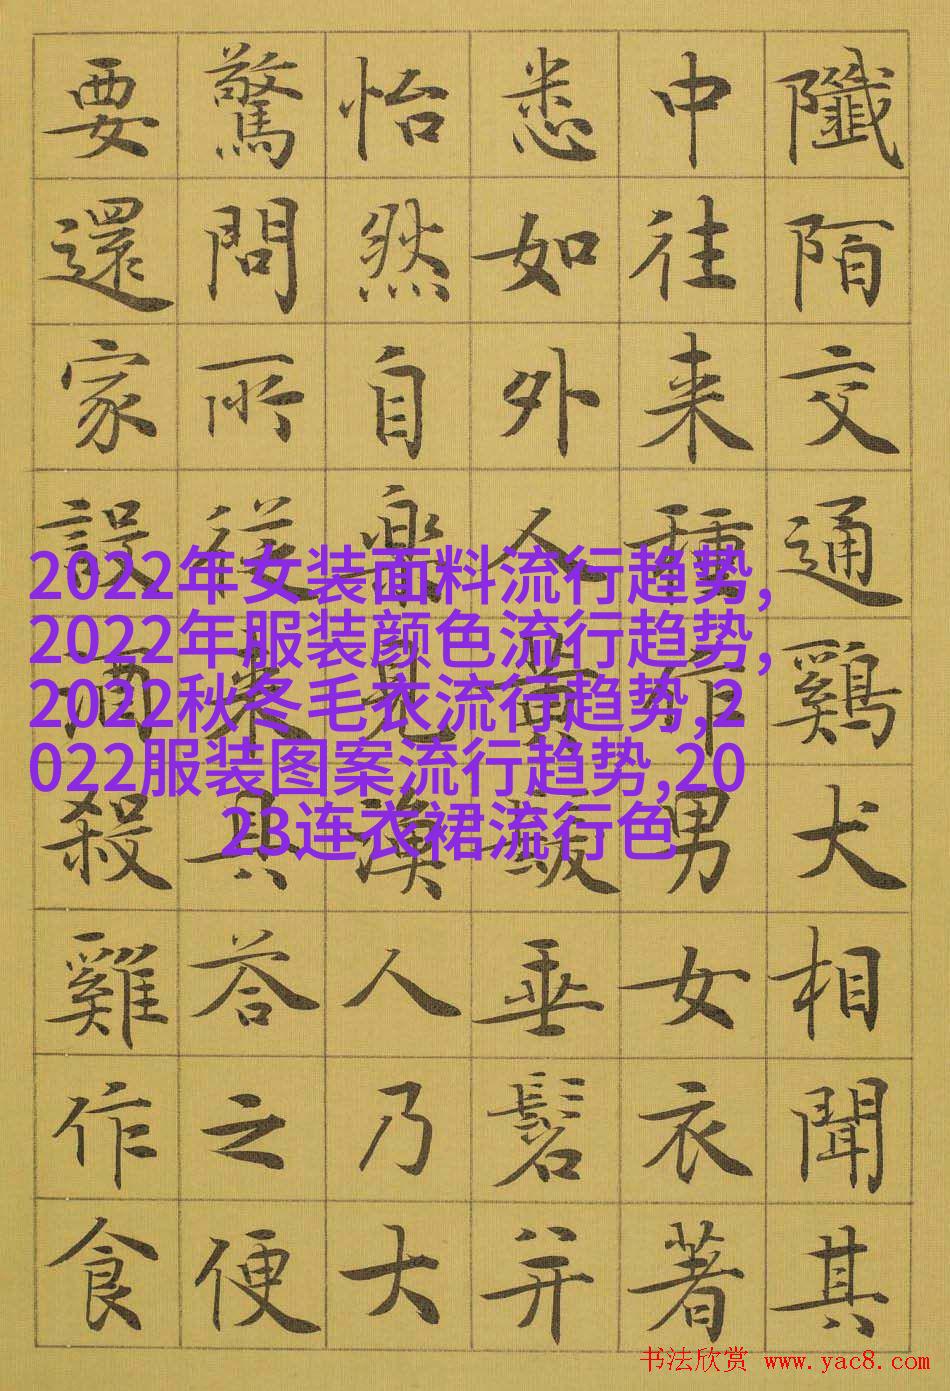 陌交通鷄犬相聞其
中往来種作男女衣著
悉如外人黄髮垂髫并
怡然自樂見漁人乃大
驚問所從来具答之便
要還家設酒殺雞作食
2022年女装面料流行趋势,
2022年服装颜色流行趋势,
2022秋冬毛衣流行趋势,2
022服装图案流行趋势,20
23连衣裙流行色
书法欣赏 www.yac8.com